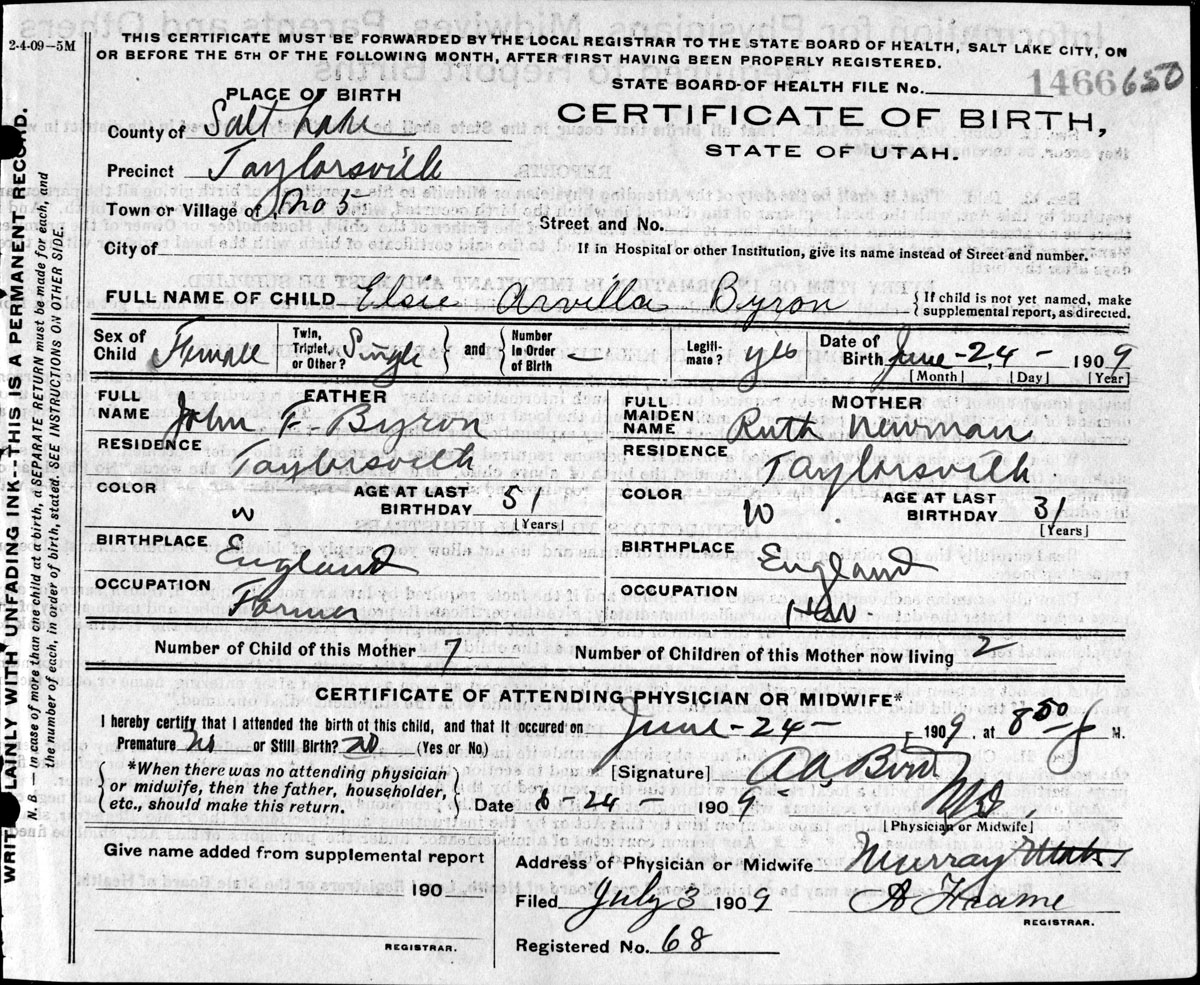 2-4-09—5M
THIS CERTIFICATE MUST BE FORWARDED BY THE LOCAL REGISTRAR TO THE STATE BOARD OF HEALTH, SALT LAKE CITY, ON
OR BEFORE THE 5TH OF THE FOLLOWING MONTH, AFTER FIRST HAVING BEEN PROPERLY REGISTERED.
STATE BOARD OF HEALTH FILE No. 1466 650
PLACE OF BIRTH
CERTIFICATE OF BIRTH,
STATE OF UTAH.
County of Salt Lake
Precinct Taylorsville
Town or Village of No 5
Street and No.
City of
If in Hospital or other Institution, give its name instead of Street and number.
FULL NAME OF CHILD Elsie Arvilla Byron { If child is not yet named, make supplemental report, as directed.
Sex of Child Female Twin, Triplet, or Other? Single } and { Number in Order of Birth Legiti-mate? yes Date of Birth June - 24 - 1909
[Month] [Day] [Year]
FATHER
FULL NAME John F. Byron
RESIDENCE Taylorsville
COLOR W AGE AT LAST BIRTHDAY 51
[Years]
BIRTHPLACE England
OCCUPATION Farmer
MOTHER
FULL MAIDEN NAME Ruth Newman
RESIDENCE Taylorsville
COLOR W AGE AT LAST BIRTHDAY 31
[Years]
BIRTHPLACE England
OCCUPATION HW.
Number of Child of this Mother 7 Number of Children of this Mother now living 2
CERTIFICATE OF ATTENDING PHYSICIAN OR MIDWIFE*
I hereby certify that I attended the birth of this child, and that it occured on June - 24 - 1909, at 8 50 M.
Premature No or Still Birth? No (Yes or No.)
{ *When there was no attending physician or midwife, then the father, householder, etc., should make this return. }
[Signature] MD.
Date 6 - 24 - 1909
[Physician or Midwife]
Give name added from supplemental report
190
REGISTRAR.
Address of Physician or Midwife Murray Utah
Filed July 3 1909
REGISTRAR.
Registered No. 68
WRIT LAINLY WITH UNFADING INK—THIS IS A PERMANENT RECORD.
N. B.—In case of more than one child at a birth, a SEPARATE RETURN must be made for each, and
the number of each, in order of birth, stated. SEE INSTRUCTIONS ON OTHER SIDE.